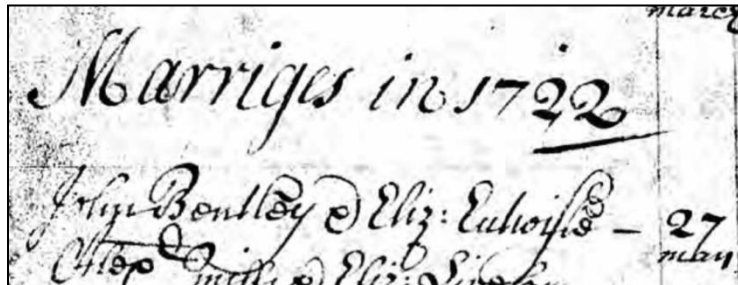 March
Marriges in 1722
John Bentley & Eliz: Entwisle – 27
may
Eliz: